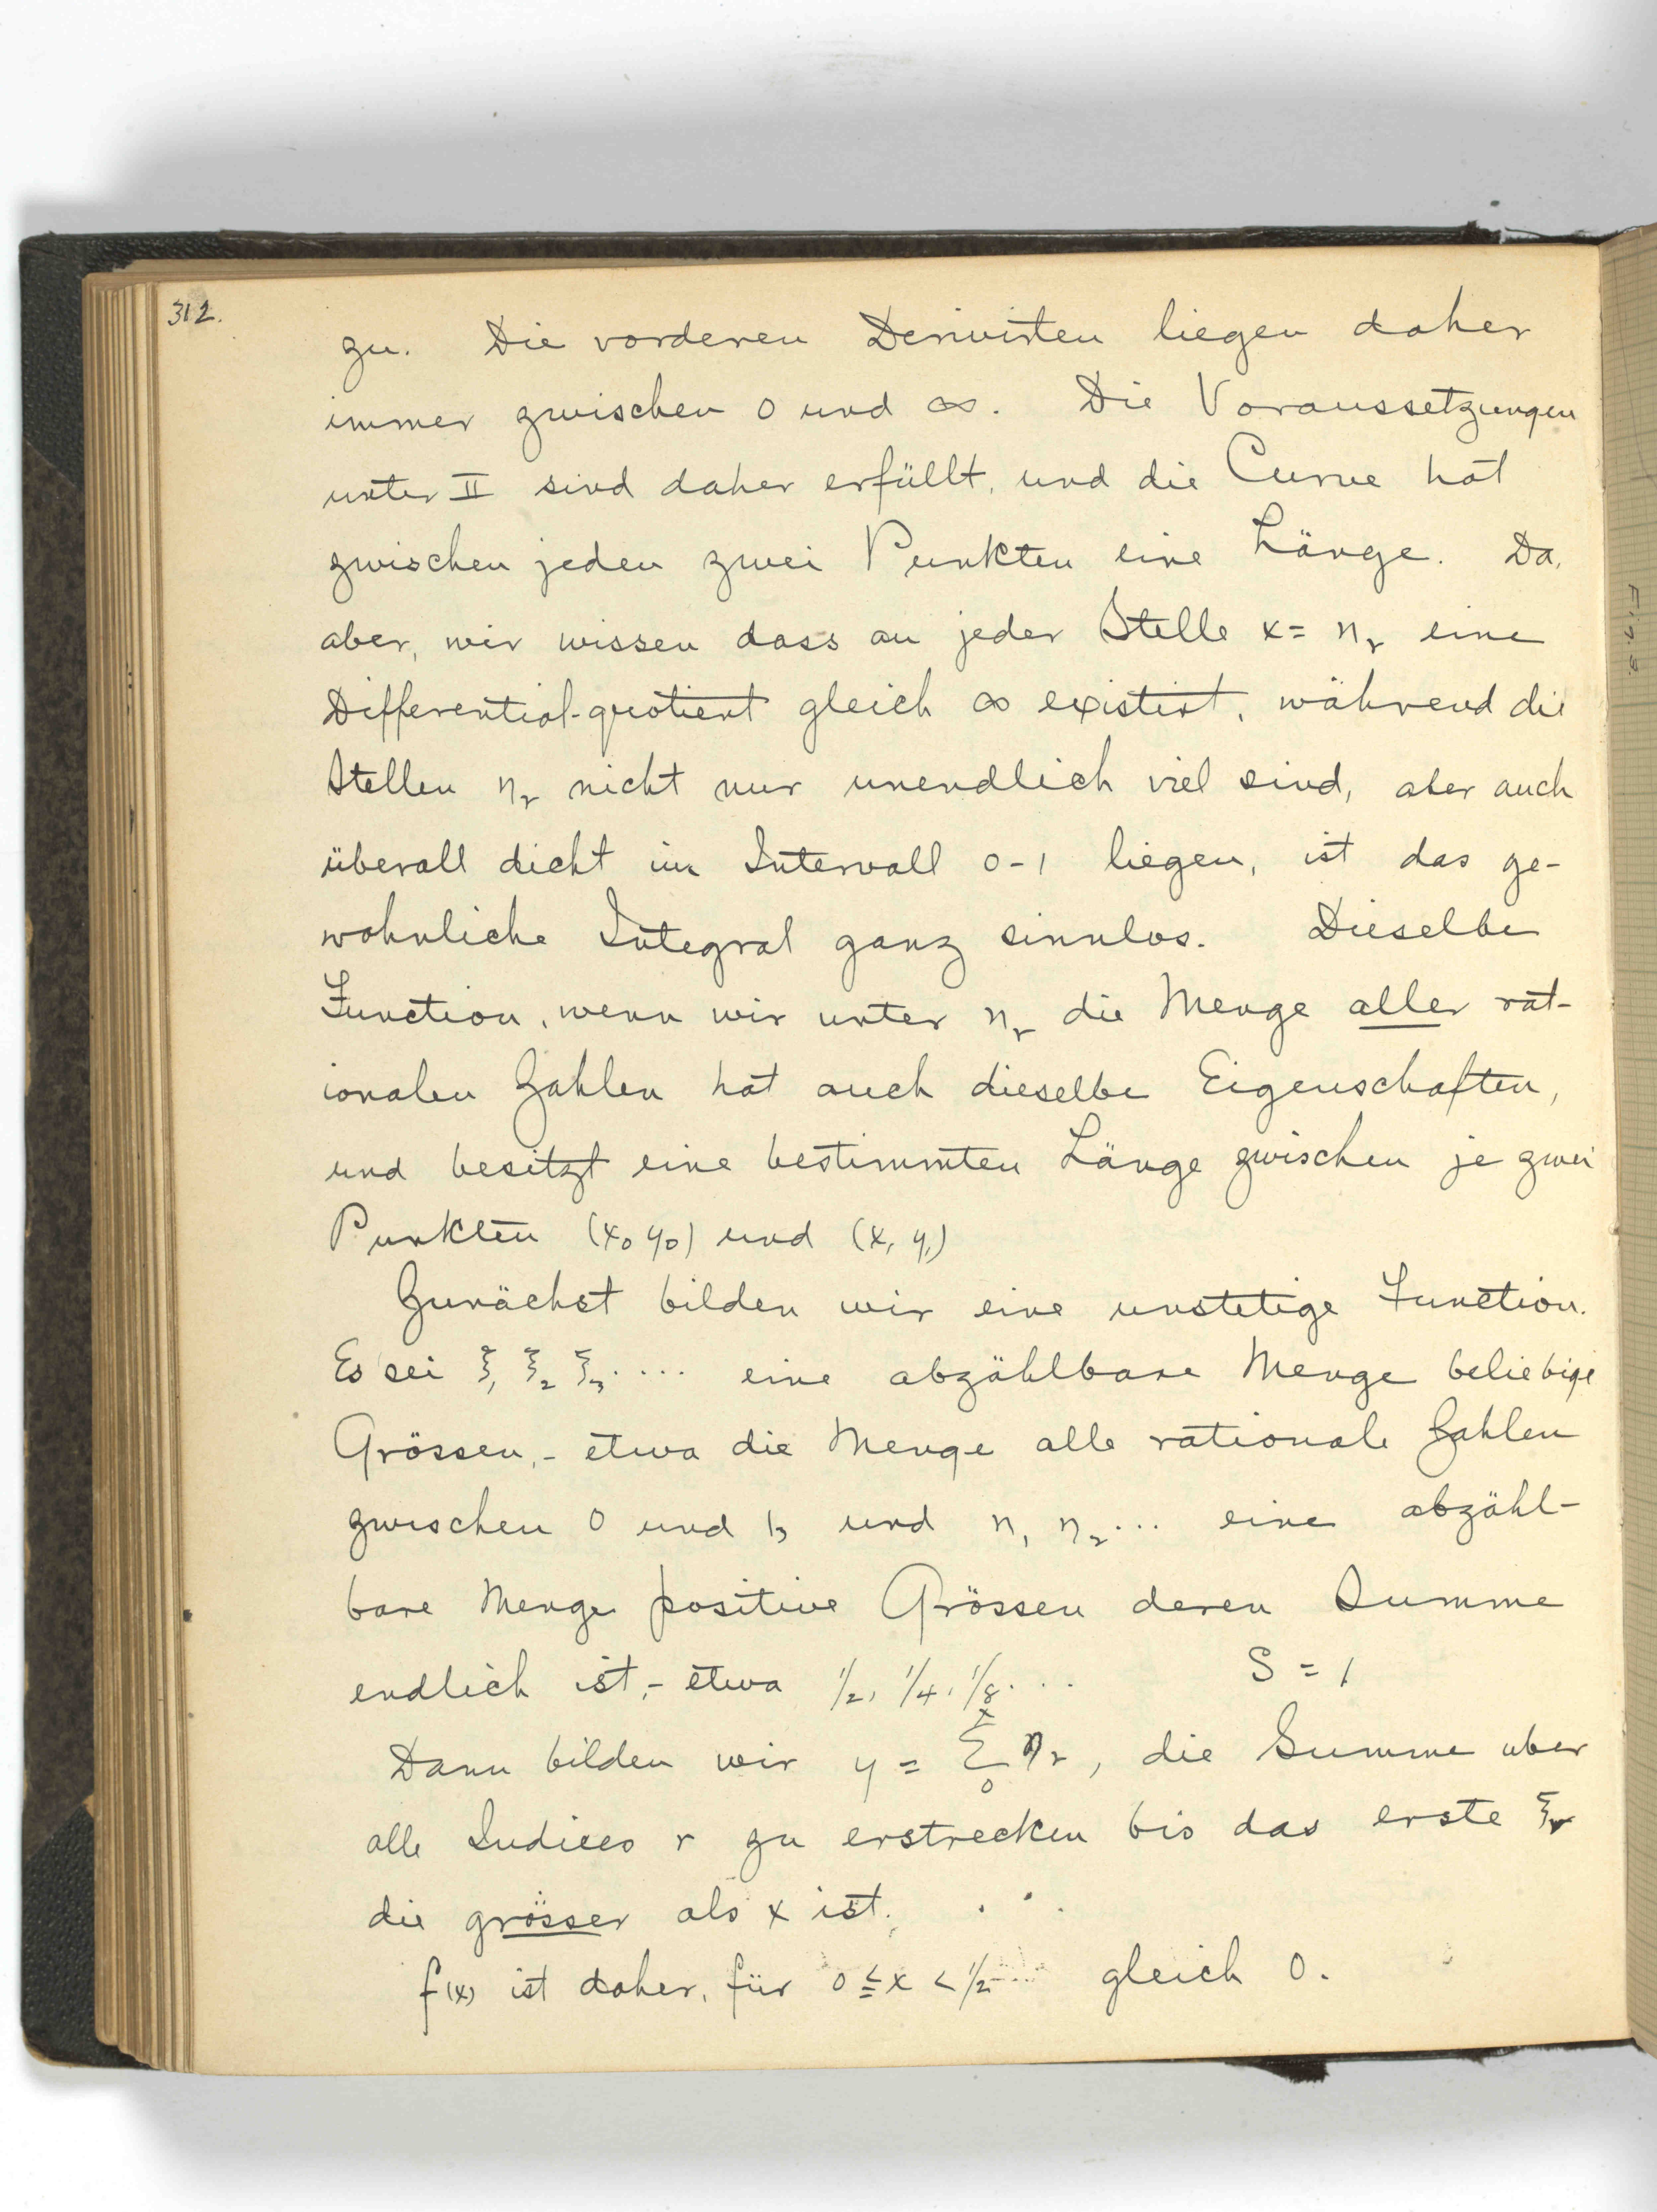 312.
zu. Die vorderen Derivirten liegen daher
immer zwischen 0 und ∞. Die Voraussetzungen
unter II sind daher erfüllt, und die Curve hat
zwischen jeden zwei Punkten eine Länge. Da,
aber, wir wissen dass an jeder Stelle x = η_r eine
Differential-quotient gleich ∞ existirt, während die
Stellen η_r nicht nur unendlich viel sind, aber auch
überall dicht im Intervall 0-1 liegen, ist das ge-
wohnliche Integral ganz sinnlos. Dieselbe
Function, wenn wir unter η_r die Menge aller rat-
ionalen Zahlen hat auch dieselbe Eigenschaften,
und besitzt eine bestimmten Länge zwischen je zwei
Punkten (x₀ y₀) und (x₁ y₁)
Zunächst bilden wir eine unstetige Function.
Es sei ξ₁ ξ₂ ξ₃ .... eine abzählbare Menge beliebige
Grössen, - etwa die Menge alle rationale Zahlen
zwischen 0 und 1, und η₁ η₂ ... eine abzähl-
bare Menge positive Grössen deren Summe
endlich ist, - etwa 1/2, 1/4, 1/8 ... S = 1
Dann bilden wir y = Σ₀ˣ η_r, die Summe uber
alle Indices r zu erstrecken bis das erste ξ_r
die grösser als x ist.
f(x) ist daher, für 0 ≦ x < 1/2 gleich 0.